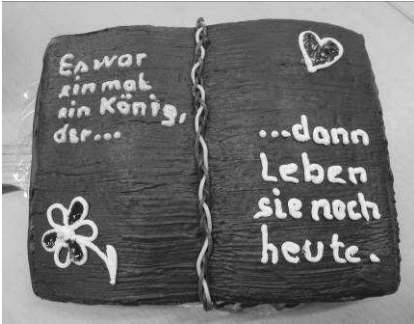 Es war
einmal
ein König,
der...
...dann
Leben
sie noch
heute.